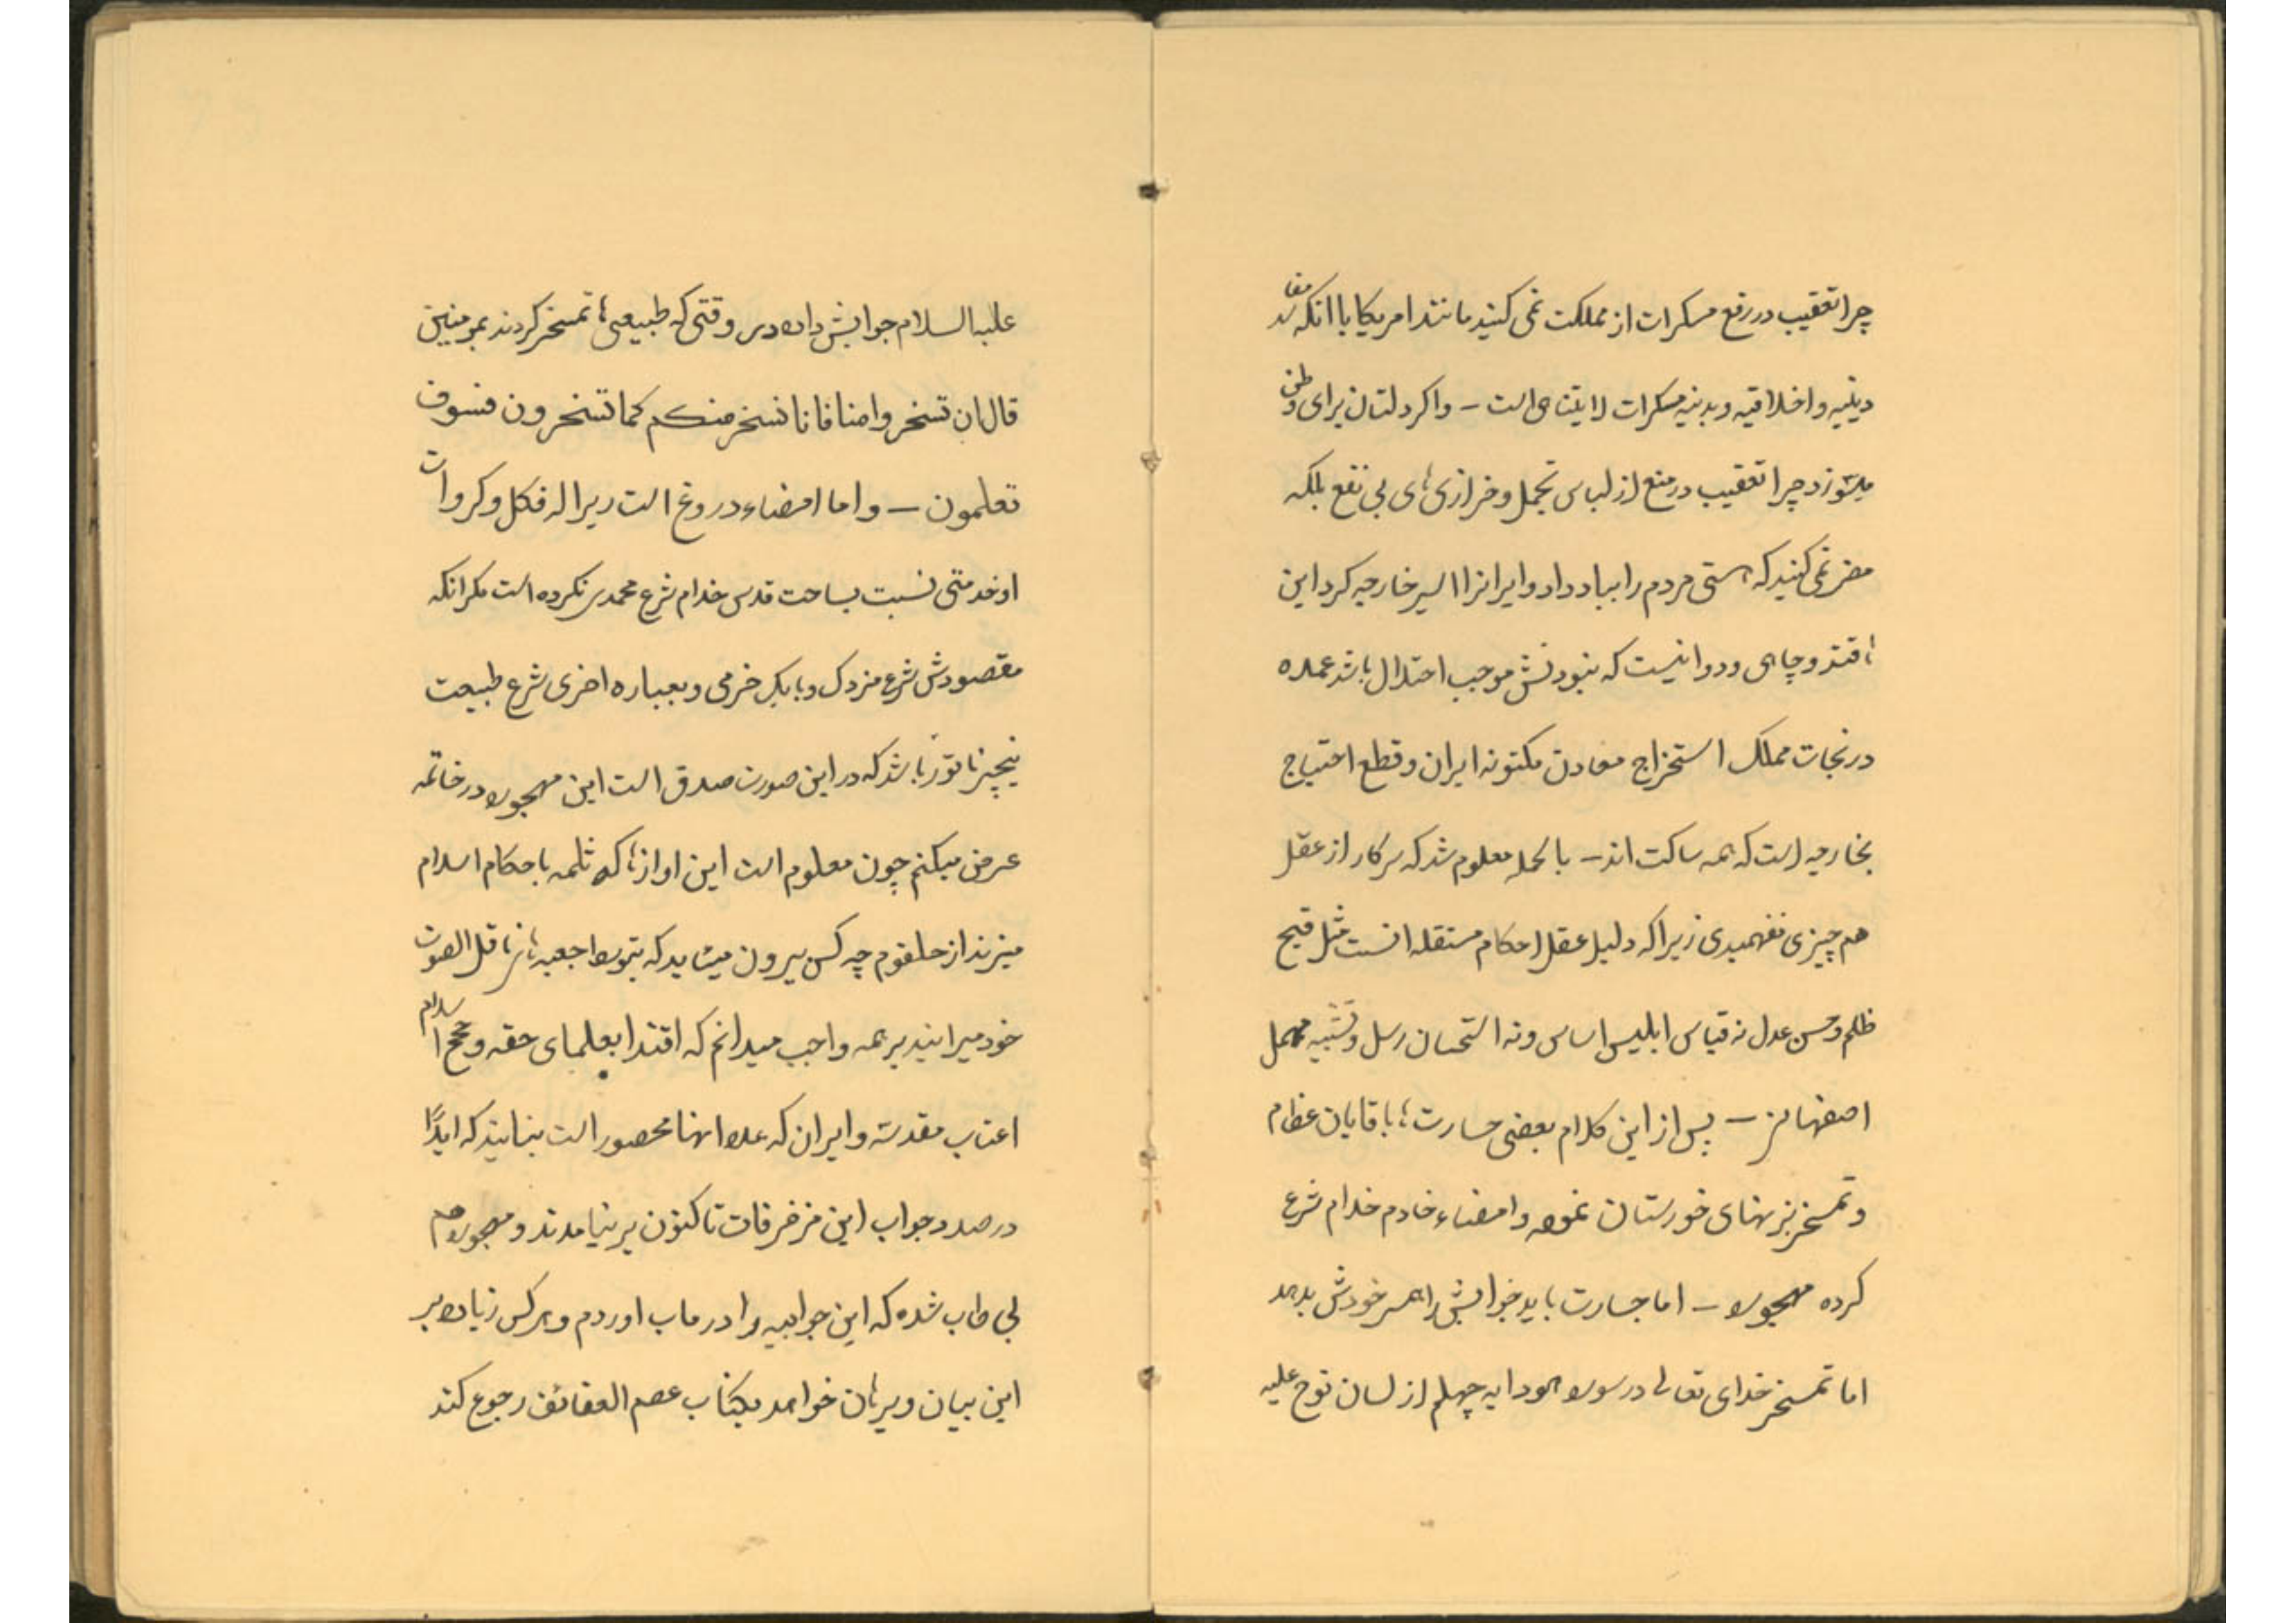 چرا تعقیب در رفع مسکرات از مملکت نمی کنید مانند امریکا با انکه مفاسد
دینیه و اخلاقیه و بدنیه مسکرات لایتناهی است – و اکر دلتان برای وطن
میسوزد چرا تعقیب در منع از لباس تجمل و خرازی‌های بی نفع بلکه
مضر نمی کنید که هستی مردم را بباد داد و ایرانرا اسیر خارجیه کرد این
قند و چاهی و دوا نیست که نبودنش موجب اختلال باشد عمده
در نجات مملکت استخراج معادن مکنونه ایران و قطع احتیاج
بخارجیه است که همه ساکت اند – بالجمله معلوم شد که سرکار از عقل
هم چیزی نفهمیدی زیرا که دلیل عقل احکام مستقله انست مثل قبح
ظلم و حسن عدل نه قیاس ابلیس اساس و نه استحسان رسل و تشبیه مهمل
اصفهانی – پس از این کلام بعضی جسارت‌ها باقایان عظام
و تمسخر بزبهنای خورستان نموده و امضاء خادم خدام شرع
کرده مهجور – اما جسارت باید جوابش را همسر خودش بدهد
اما تمسخر خدای تعالی در سوره هود ایه چهلم از لسان نوح علیه
علیه السلام جوابش داده در وقتی که طبیعی‌ها تمسخر کردند بمومنین
قال ان تسخروا منا فانا نسخر منکم کما تسخرون فسوف
تعلمون – و اما امضاء دروغ است زیرا که فکل و کروات
او خدمتی نسبت بساحت قدس خدام شرع محمدی نکرده است مکر انکه
مقصودش شرع مزدک و بابک خرمی و بعباره اخری شرع طبیعت
باشد که در این صورت صدق است این مهجور در خاتمه
عرض میکنم چون معلوم است این اوازها که ثلمه باحکام اسلام
میزند از حلقوم چه کس بیرون میاید که بتوسط جعبه‌های ناقل الصوت
خود میرانید بر همه واجب میدانم که اقتدا بعلمای حقه و حجج اسلام
اعتاب مقدسه و ایران که علاء انها محصور است بنمایند که ابداً
در صدد جواب این مزخرفات تا کنون بر نیامدند و مهجور هم
بی طاب شده که این جوابیه را در ماب اوردم و هرکس زیاده بر
این بیان و برهان خواهد بکتاب عصم العقائف رجوع کند